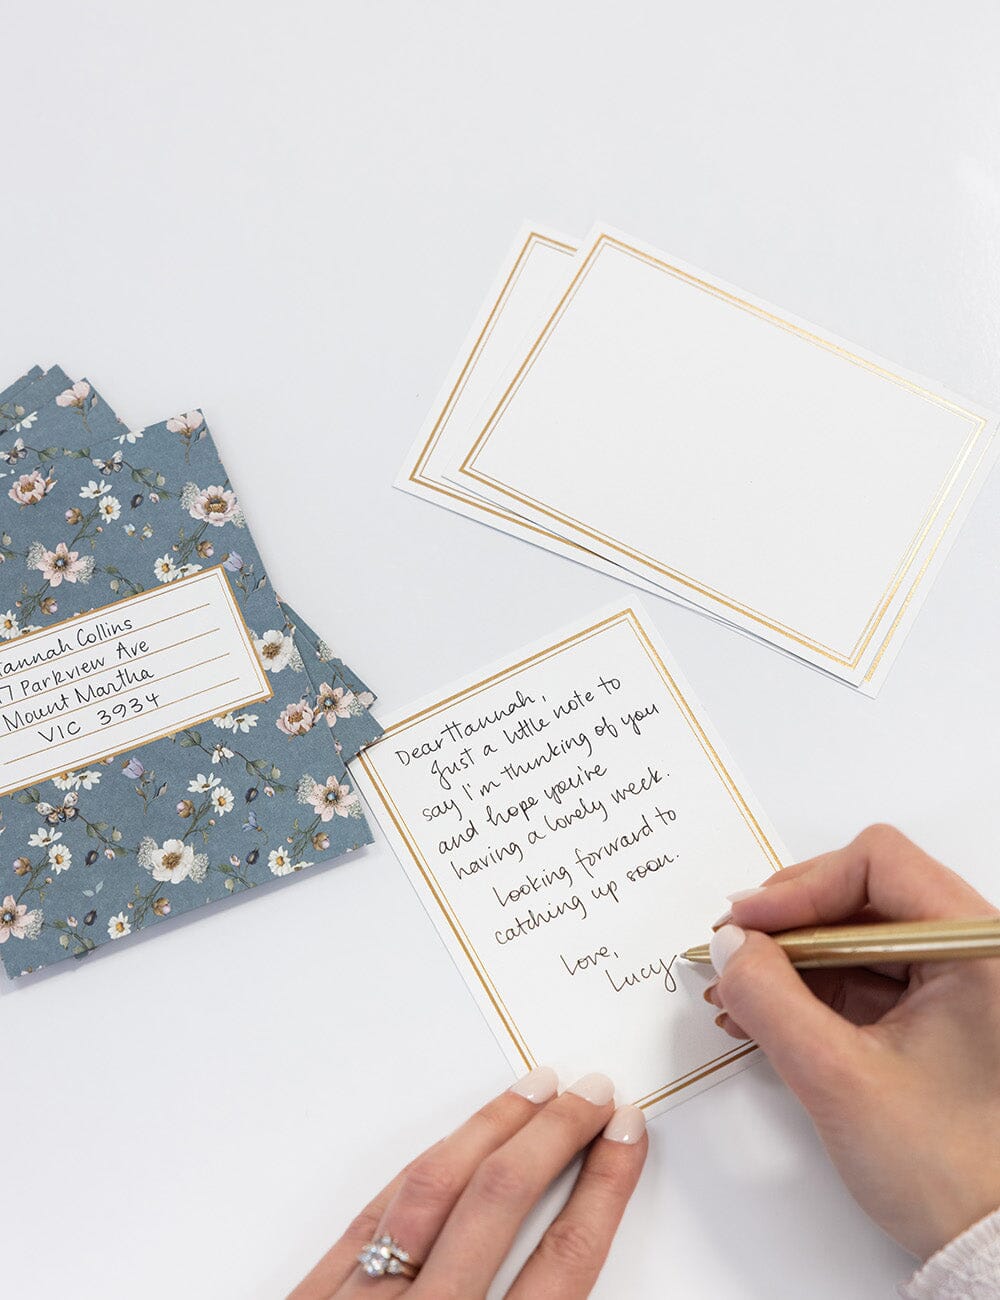 Hannah Collins
7 Parkview Ave
Mount Martha
VIC 3934
Dear Hannah,
Just a little note to
say I'm thinking of you
and hope you're
having a lovely week.
Looking forward to
catching up soon.
Love,
Lucy